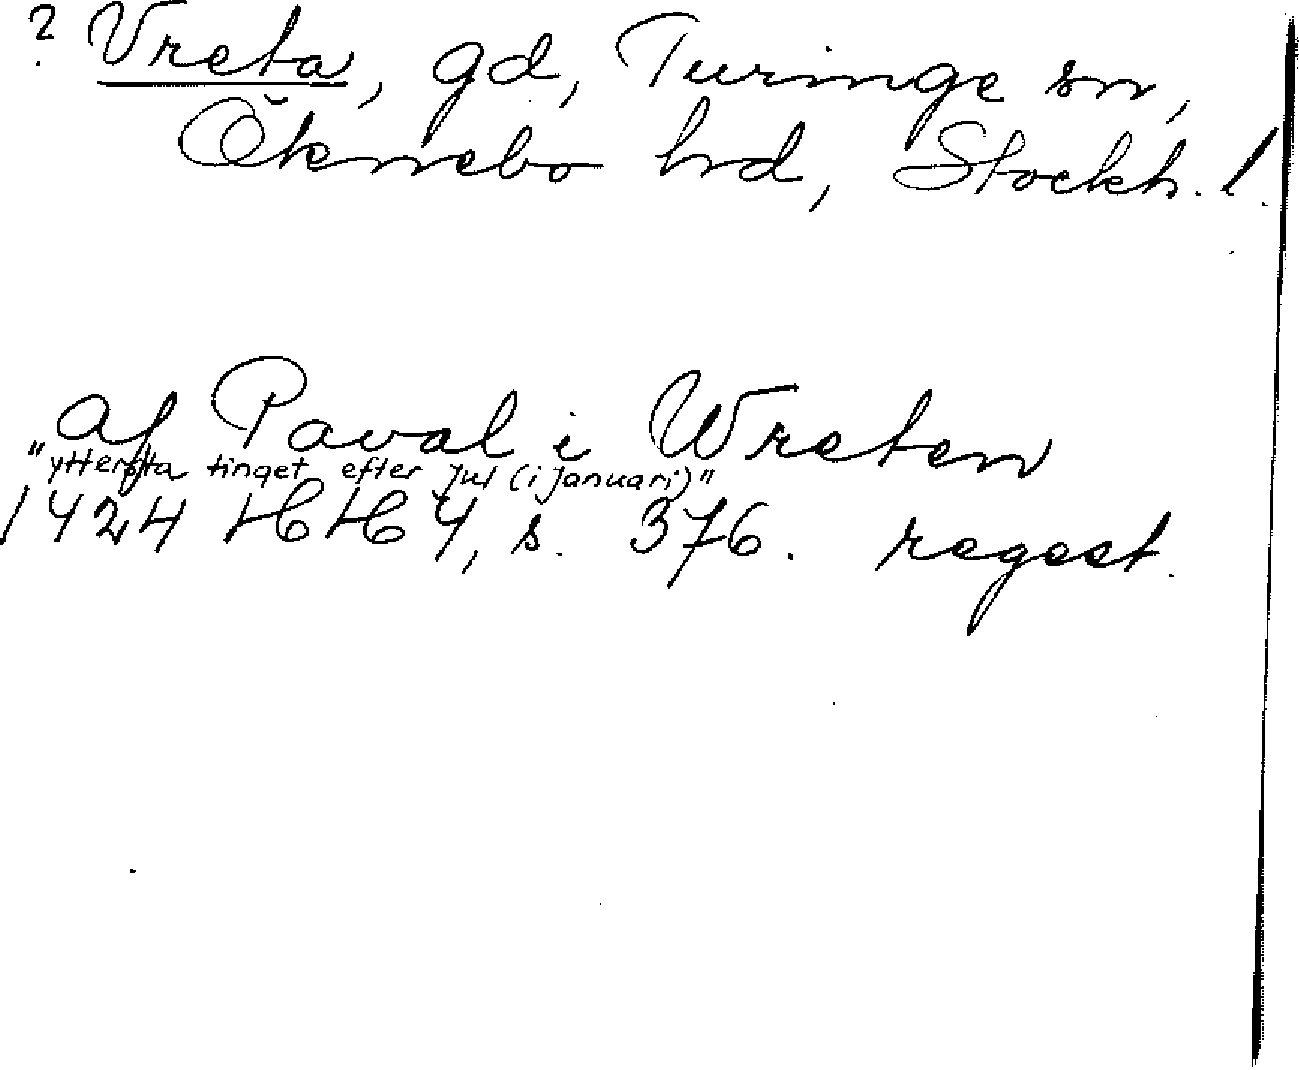 ? Vreta, gd, Turinge sn,
Öknebo hrd, Stockh. l.
af Paval i Wreten
"yttersta tinget efter jul (i januari)"
1424 HH 4, s. 376. regest.